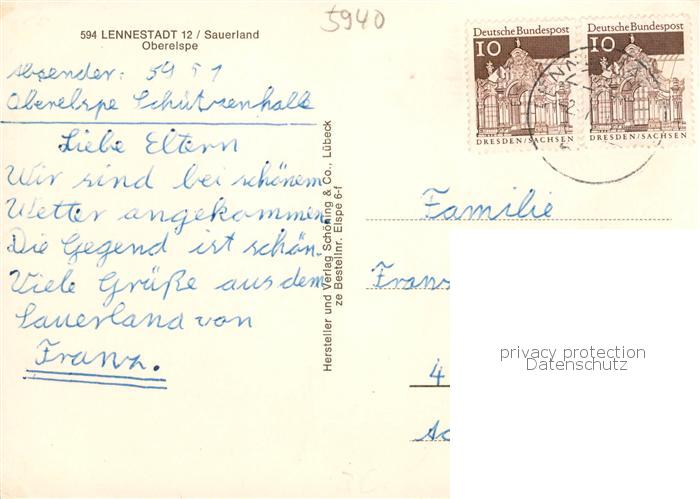 594 LENNESTADT 12 / Sauerland
Oberelspe
5940
Absender: 59 5 1
Oberelspe Schützenhalle
Liebe Eltern
Wir sind bei schönem
Wetter angekommen
Die Gegend ist schön.
Viele Grüße aus dem
Sauerland von
Franz.
Hersteller und Verlag Schöning & Co., Lübeck
ze Bestellnr. Elspe 6-f
Deutsche Bundespost
10
DRESDEN/SACHSEN
Deutsche Bundespost
10
DRESDEN/SACHSEN
Familie
Franz
4
privacy protection
Datenschutz